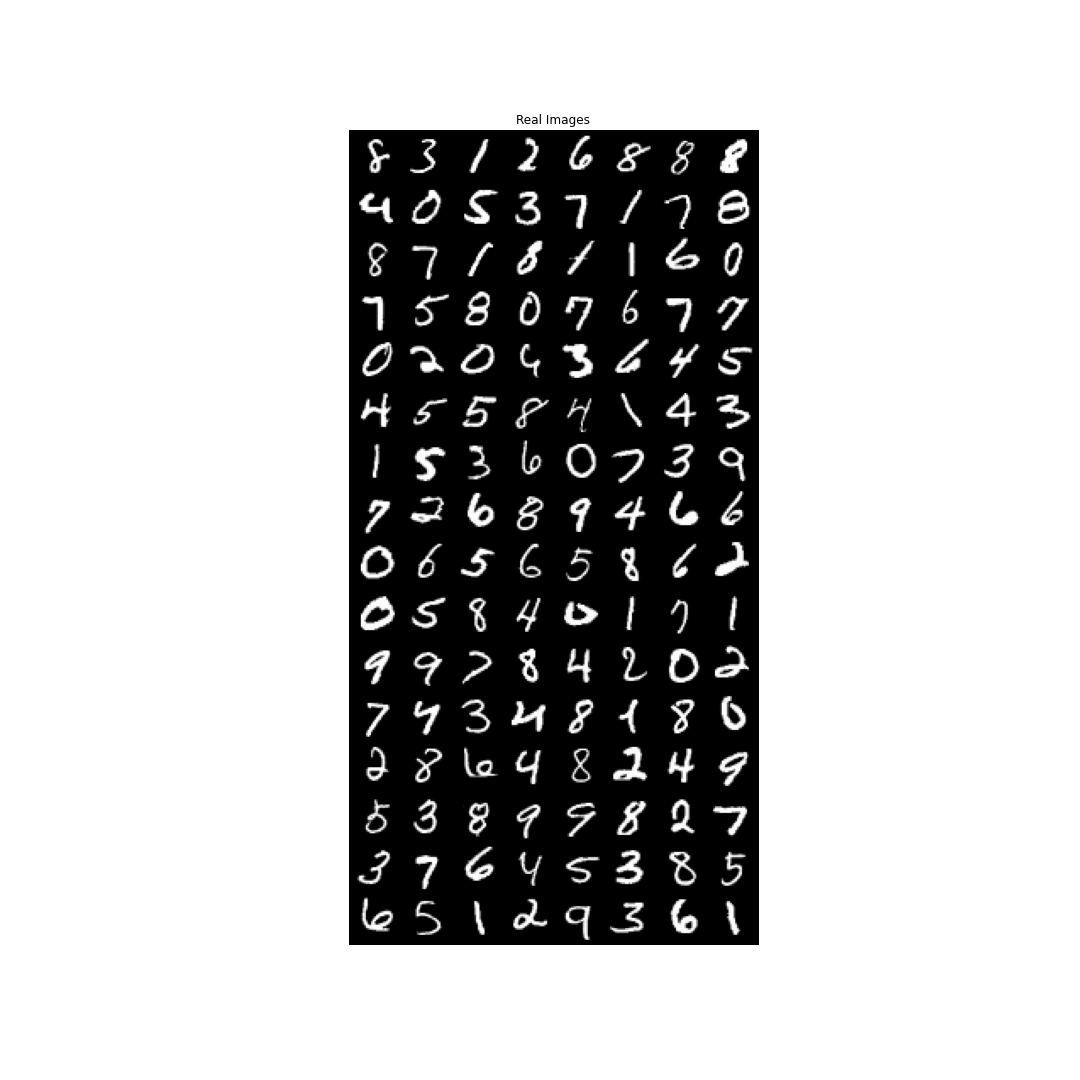 Real Images
8 3 1 2 6 8 8 8
4 0 5 3 7 1 7 8
8 7 1 8 1 1 6 0
7 5 8 0 7 6 7 7
0 2 0 4 3 6 4 5
4 5 5 8 4 1 4 3
1 5 3 6 0 7 3 9
7 2 6 8 9 4 6 6
0 6 5 6 5 8 6 2
0 5 8 4 0 1 7 1
9 9 7 8 4 2 0 2
7 4 3 4 8 1 8 0
2 8 6 4 8 2 4 9
5 3 8 9 9 8 2 7
3 7 6 4 5 3 8 5
6 5 1 2 9 3 6 1